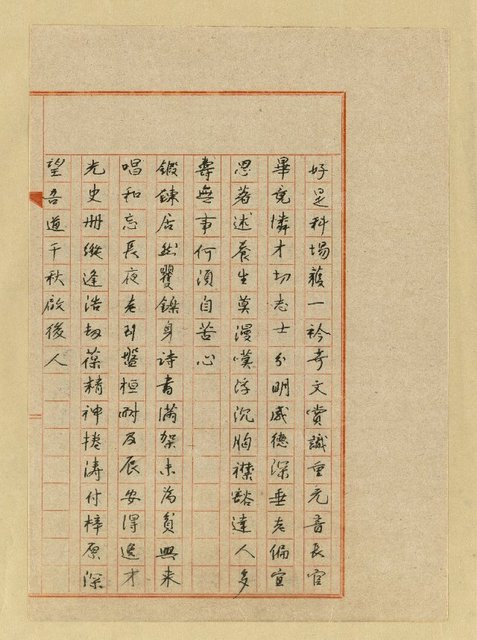 好是科場獲一衿奇文賞識重元音長官
畢竟憐才切志士分明感德深垂老偏宜
思著述養生莫漫嘆浮沉胸襟豁達人多
壽無事何須自苦心
鍛鍊居然矍鑠身詩書滿架未為貧興來
唱和忘長夜老到盤桓耐及辰安得逸才
光史冊縱逢浩劫葆精神捲濤付梓原深
望吾道千秋啟後人